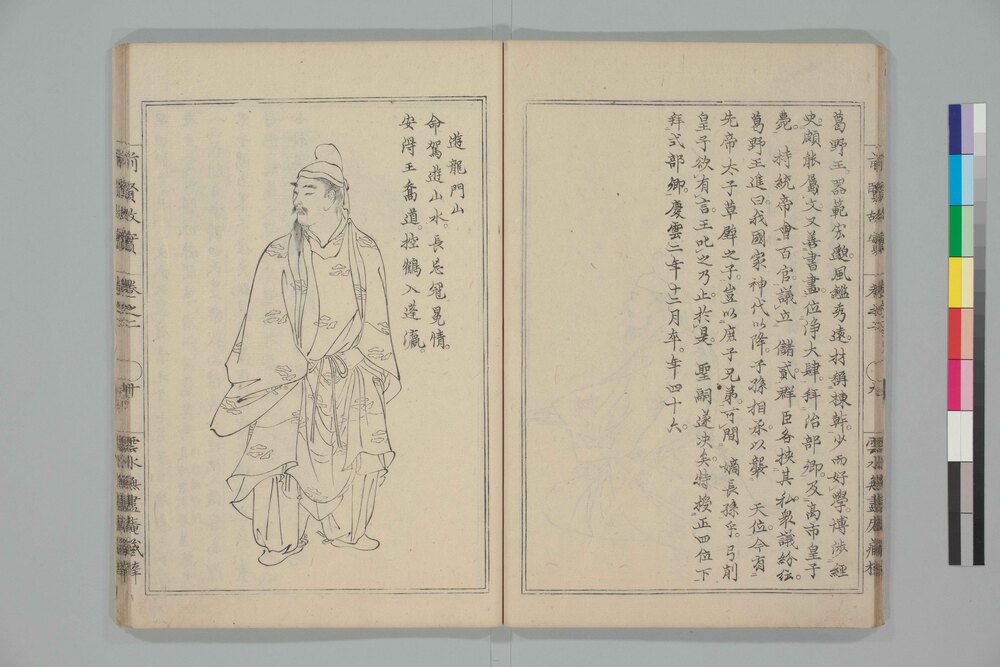 葛野王。器範宏邈。風鑑秀遠。材稱棟幹。少而好學。博渉經
史。頗能屬文。又善書畫。位浄大肆。拜治部卿。及高市皇子
薨。持統帝會百官。議立儲貳。群臣各挾其私。衆議紛紜。
葛野王進曰。我國家神代以降。子孫相承。以襲天位。今有
先帝太子草壁之子。豈以庶子兄弟。可間嫡長孫乎。弓削
皇子欲有言。王叱之乃止。於是聖嗣遂决矣。特授正四位下
拜式部卿。慶雲二年十二月卒。年四十六。
遊龍門山
命駕遊山水。長忘冠冕情。
安得王喬道。控鶴入蓬瀛。
前賢故實
卷之一
雲水無盡庵藏